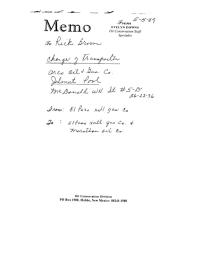 Memo
5-5-89
From
EVELYN DOWNS
Oil Conservation Staff
Specialist
To Rick Brown
Change of Transporter
Orco Oil & Gas Co.
Jalmat Pool
McDonald WN St #5-D
26-22-36
From: El Paso natl gas Co
To: El Paso natl gas Co. &
Marathon Oil Co
Oil Conservation Division
PO Box 1980, Hobbs, New Mexico 88241-1980